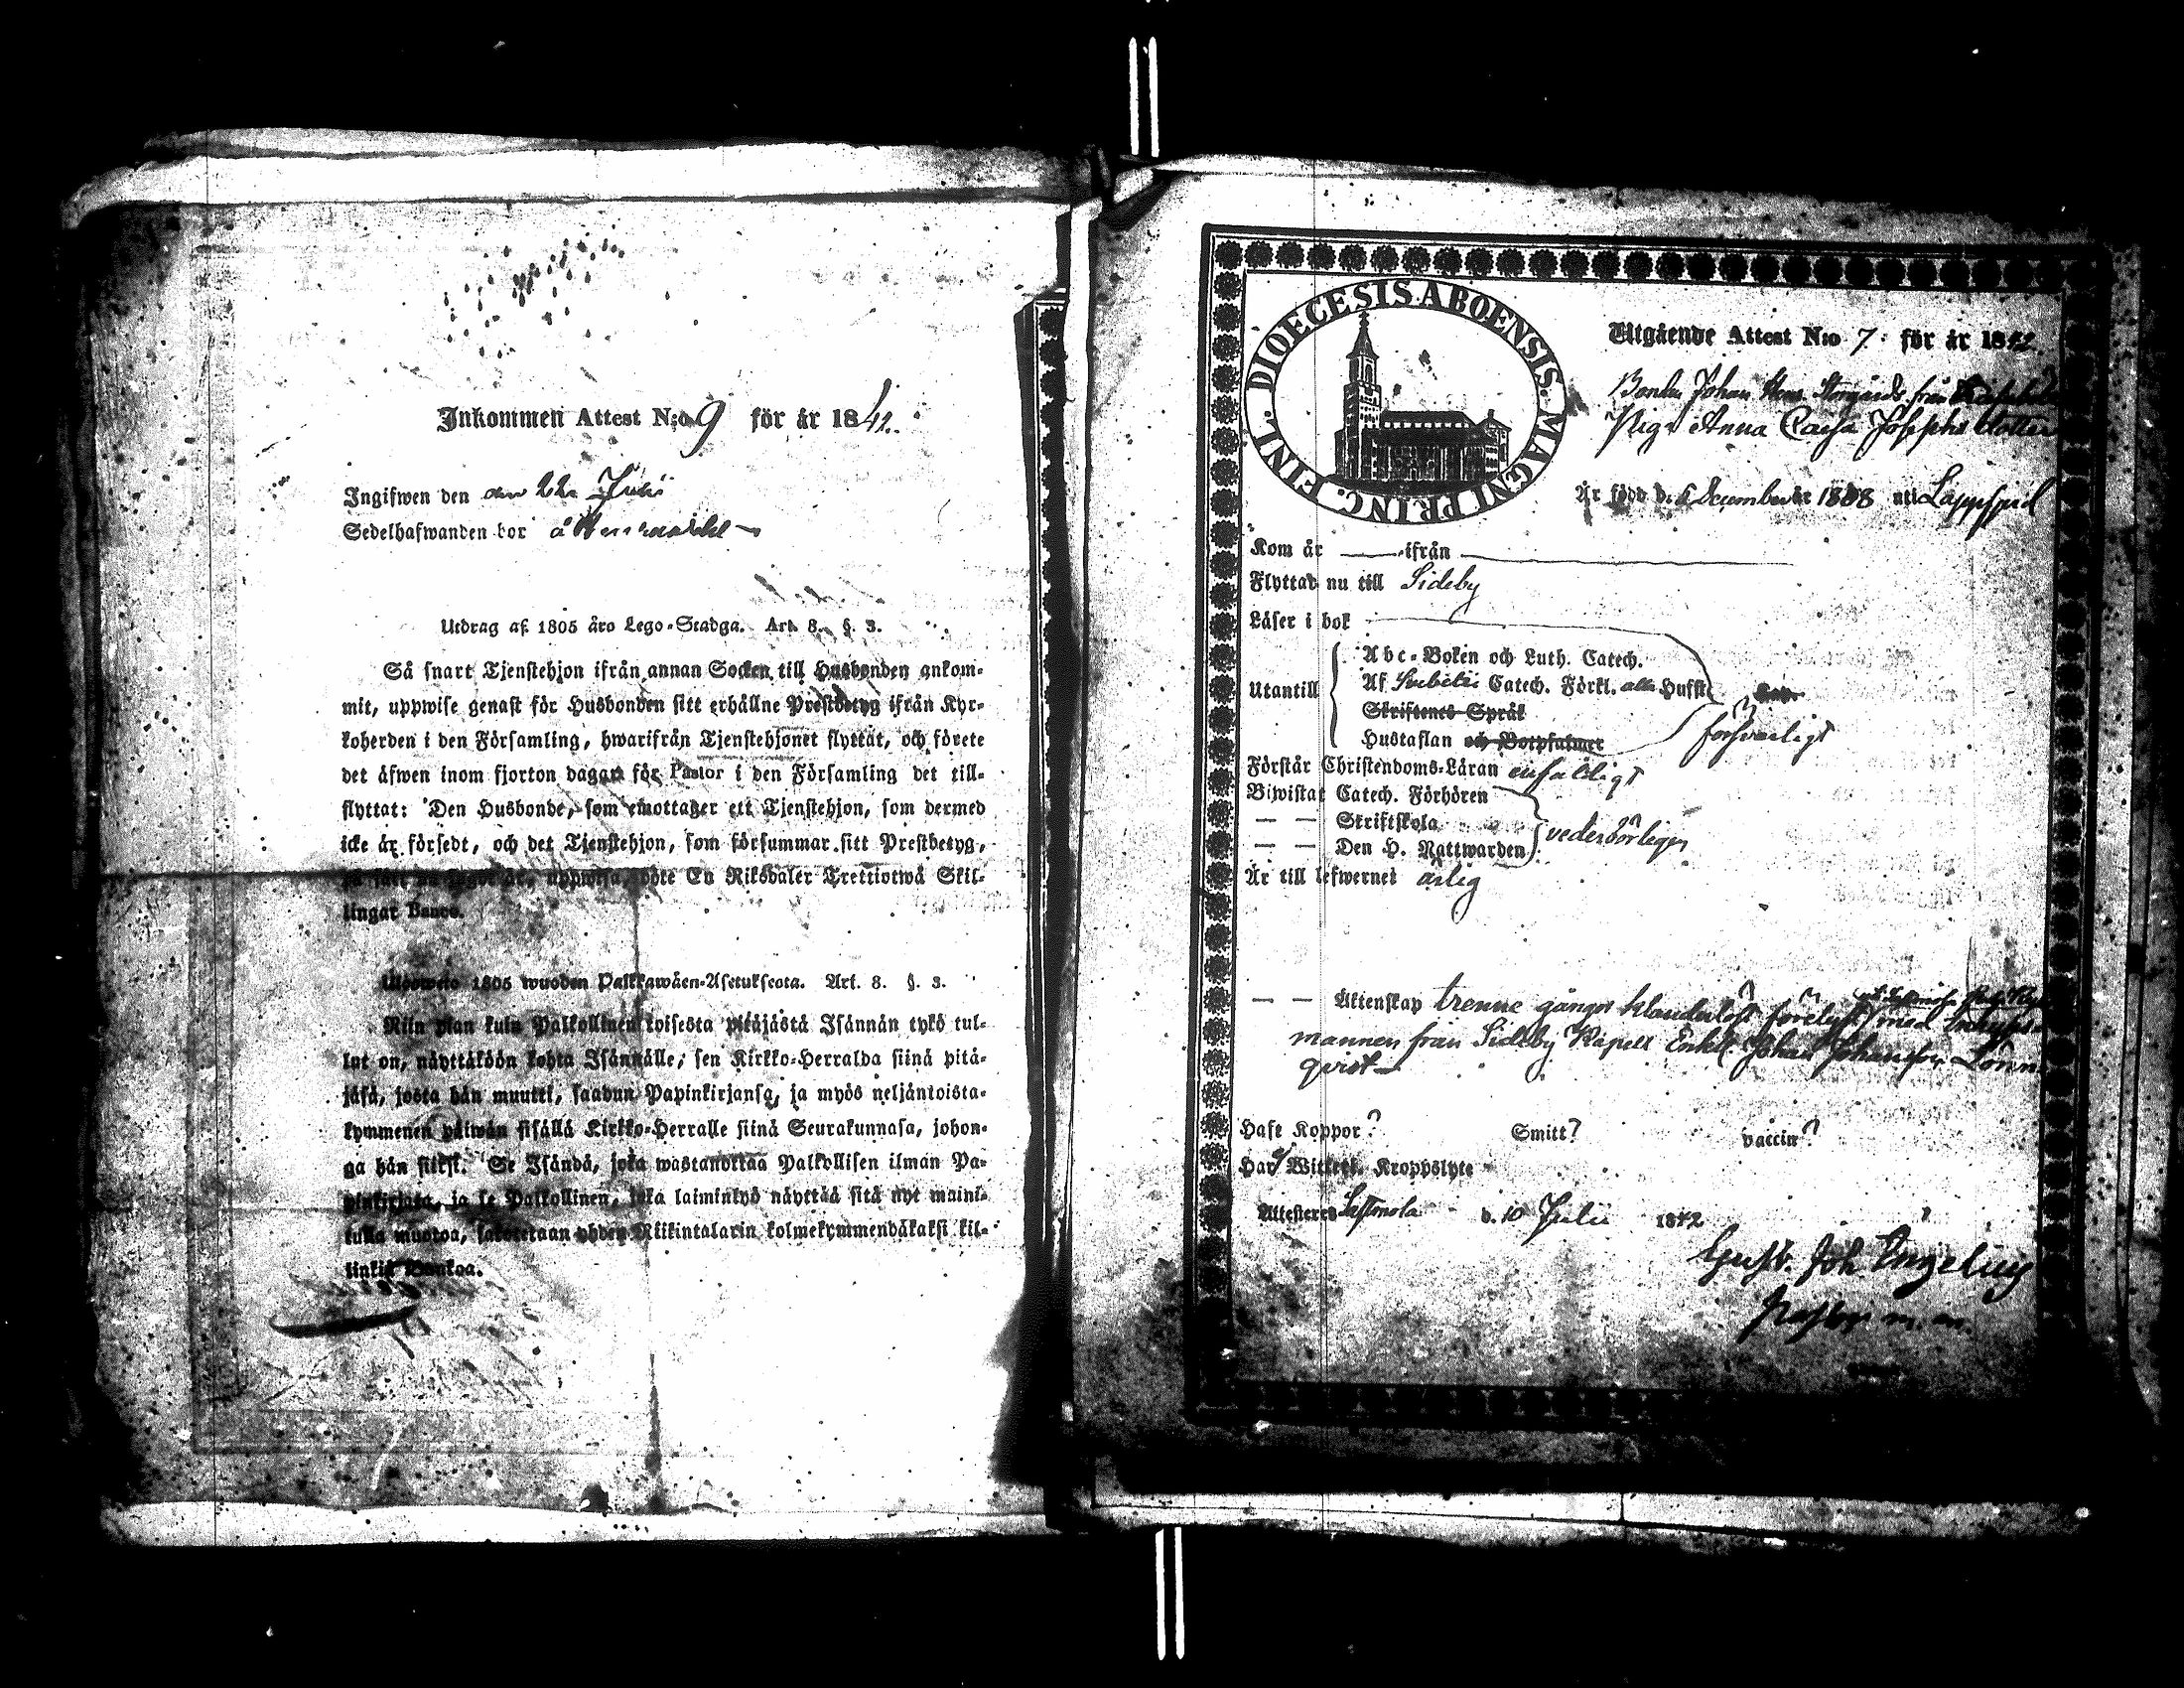 Inkommen Attest N:o 9 för år 1842.
Ingifwen den den 22 Julii
Sedelhafwanden bor å
Utdrag af 1805 åro Lego-Stadga. Art. 8. §. 3.
Så snart Tjenstehjon ifrån annan Socken till Husbonden ankom-
mit, uppwise genast för Husbonden sitt erhållne Prestbetyg ifrån Kyr-
koherden i den Församling, hwarifrån Tjenstehjonet flyttat, och förete
det äfwen inom fjorton dagar för Pastor i den Församling det till-
flyttat: Den Husbonde, som emottager ett Tjenstehjon, som dermed
icke är försedt, och det Tjenstehjon, som försummar sitt Prestbetyg,
så sätt nu sagt är, uppwisa, böte En Riksdaler Trettiotwå Skil-
lingar Banco.
Ulosweto 1805 wuoden Palkkawäen-Asetuksesta. Art. 8. §. 3.
Niin pian kuin Palkollinen toisesta pitäjästä Isännän tykö tul-
lut on, näyttäköön kohta Isännälle, sen Kirkko-Herralda siinä pitä-
jäsä, josta hän muutti, saadun Papinkirjansa, ja myös neljäntoista-
kymmenen päiwän sisällä Kirkko-Herralle siinä Seurakunnasa, johon-
ga hän siirsi. Se Isändä, joka wastanottaa Palkollisen ilman Pa-
pinkirjata, ja se Palkollinen, joka laiminlyö näyttää sitä nyt maini-
tulla muotoa, sakotetaan yhden Riikintalarin kolmekymmendäkaksi kil-
linkiä Bankoa.
DIOECESIS ABOENSIS. MAGNI PRINC. FINL.
Utgående Attest N:o 7. för år 1842.
Bonden Johan Storgårds från
Pig. Anna Caisa Josephs dotter
Är född d. 6 December år 1808 uti Lappfjerd
Kom år — ifrån —
Flyttat nu till Sideby
Läser i bok
Utantill
Abc-Boken och Luth. Catech.
Af Svebilii Catech. Förkl. alla Hufst.
Skriftenes Språk
Hustaflan och Botpsalmer
försvarligt
Förstår Christendoms-Läran enfaldigt
Biwistat Catech. Förhören
— — Skriftskola
— — Den H. Nattwarden
vederbörligen
Är till lefwernet ärlig
— — Äktenskap trenne gånger klanderlöst förelyst med
mannen från Sideby Kapell Enkl. Johan Johansson Lönn-
qvist —
Haft Koppor? Smitt? vaccin?
Har ej Witterl. Kroppslyte
Attesteras Lastmola d. 10 Julii 1842
Gust. Joh.
m. m.